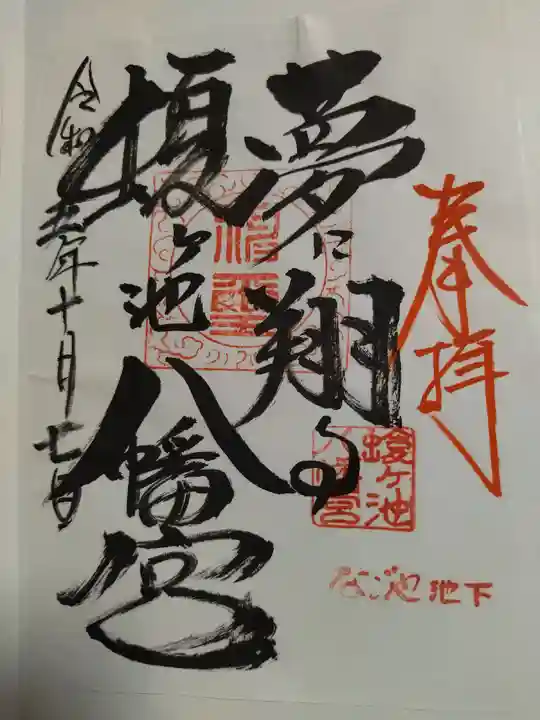 奉拝
夢に翔る
蝮ヶ池八幡宮
令和五年十月七日
蝮ヶ池八幡宮
なごや池下